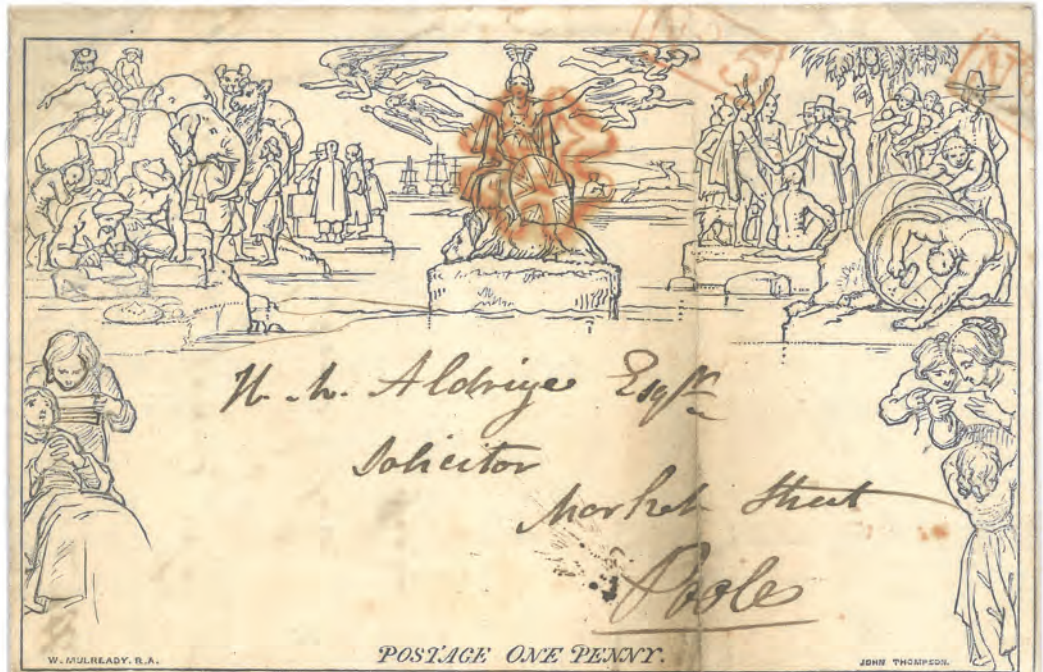 No 5
H. M. Aldridge Esqre
Solicitor
Market Street
Poole
W. MULREADY. R.A.
POSTAGE ONE PENNY.
JOHN THOMPSON.